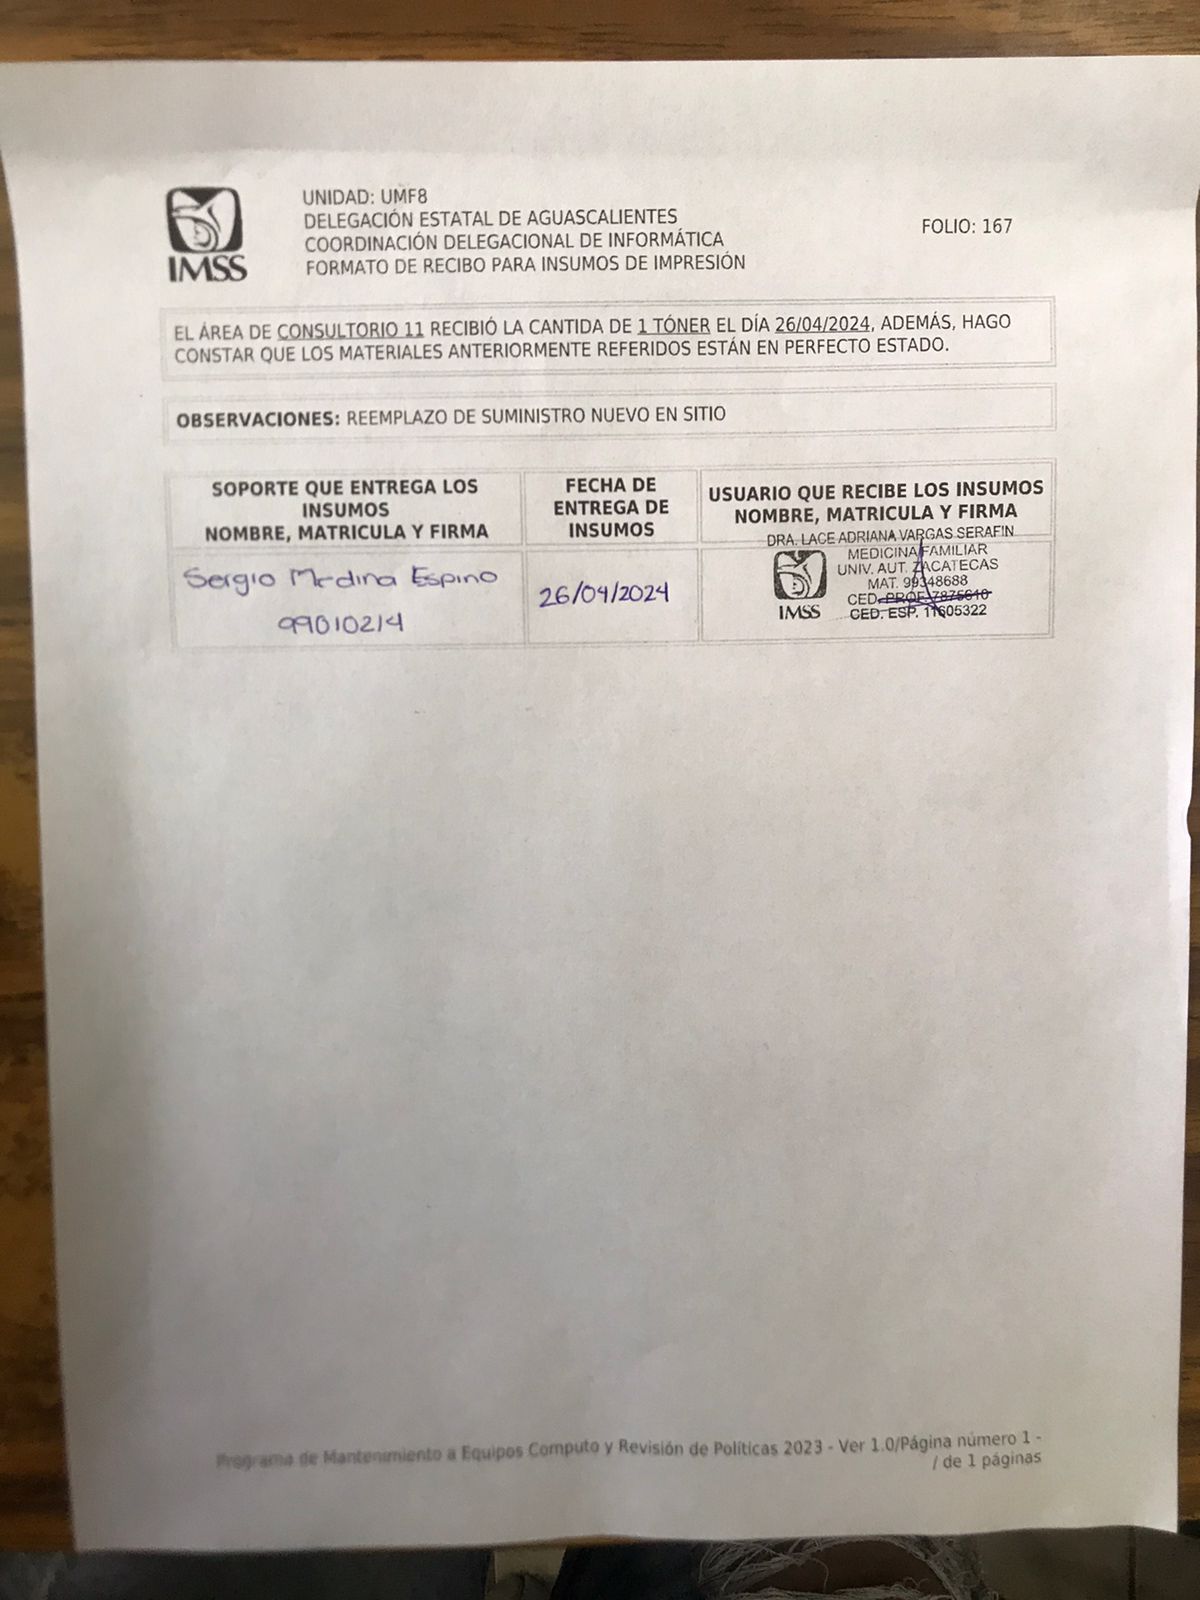 UNIDAD: UMF8
DELEGACIÓN ESTATAL DE AGUASCALIENTES
COORDINACIÓN DELEGACIONAL DE INFORMÁTICA
FORMATO DE RECIBO PARA INSUMOS DE IMPRESIÓN
FOLIO: 167
IMSS
EL ÁREA DE CONSULTORIO 11 RECIBIÓ LA CANTIDA DE 1 TÓNER EL DÍA 26/04/2024, ADEMÁS, HAGO
CONSTAR QUE LOS MATERIALES ANTERIORMENTE REFERIDOS ESTÁN EN PERFECTO ESTADO.
OBSERVACIONES: REEMPLAZO DE SUMINISTRO NUEVO EN SITIO
SOPORTE QUE ENTREGA LOS
INSUMOS
NOMBRE, MATRICULA Y FIRMA
FECHA DE
ENTREGA DE
INSUMOS
USUARIO QUE RECIBE LOS INSUMOS
NOMBRE, MATRICULA Y FIRMA
Sergio Medina Espino
99010214
26/04/2024
DRA. LACE ADRIANA VARGAS SERAFIN
MEDICINA FAMILIAR
UNIV. AUT. ZACATECAS
MAT. 99348688
CED. PROF. 7875610
CED. ESP. 11605322
IMSS
Programa de Mantenimiento a Equipos Computo y Revisión de Políticas 2023 - Ver 1.0/Página número 1 -
/ de 1 páginas